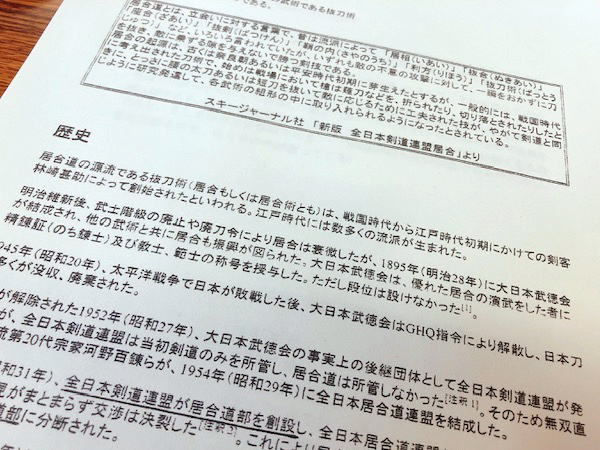 武術である抜刀術
である。
居合道とは、立会いに対する言葉で、昔は流派によって「居相(いあい)」、「抜合(ぬきあい)」
「座合(ざあい)」、「抜剣(ばっけん)」、「鞘の内(さやのうち)」、「利方(りほう)」、「抜刀術(ばっとう
じゅつ)」などといろいろ言われていたが、いずれも敵の不意の攻撃に対して、一瞬をおかずに刀
を抜き、敵に乗ずる隙を与えないで勝つ剣技である。
居合の起源は、古くは奈良朝あるいは平安時代初期に芽生えたとするが、一般的には、戦国時代
に考え出された刀術で、始めは戦場において槍は薙刀などを、折られたり、切り落とされたりしたと
き、とっさに腰の太刀あるいは短刀を抜いて敵に応じるために工夫された技が、やがて剣道と同
じように研究発達して、各武術の組形の中に取り入れられるようになったとされている。
スキージャーナル社 「新版 全日本剣道連盟居合」より
歴史
居合道の源流である抜刀術(居合もしくは居合術とも)は、戦国時代から江戸時代初期にかけての剣客
林崎甚助によって創始されたといわれる。江戸時代には数多くの流派が生まれた。
明治維新後、武士階級の廃止や廃刀令により居合は衰微したが、1895年(明治28年)に大日本武徳会
が結成され、他の武術と共に居合も振興が図られた。大日本武徳会は、優れた居合の演武をした者に
精錬証(のち錬士)及び教士、範士の称号を授与した。ただし段位は設けなかった[1]。
945年(昭和20年)、太平洋戦争で日本が敗戦した後、大日本武徳会はGHQ指令により解散し、日本刀
多くが没収、廃棄された。
が解除された1952年(昭和27年)、大日本武徳会の事実上の後継団体として全日本剣道連盟が発
が、全日本剣道連盟は当初剣道のみを所管し、居合道は所管しなかった[注釈 1]。そのため無双直
流第20代宗家河野百錬らが、1954年(昭和29年)に全日本居合道連盟を結成した。
和31年)、全日本剣道連盟が居合道部を創設し、全日本居合道連盟
がまとまらず交渉は決裂した[注釈 2]。これにより居
道部に分断された。